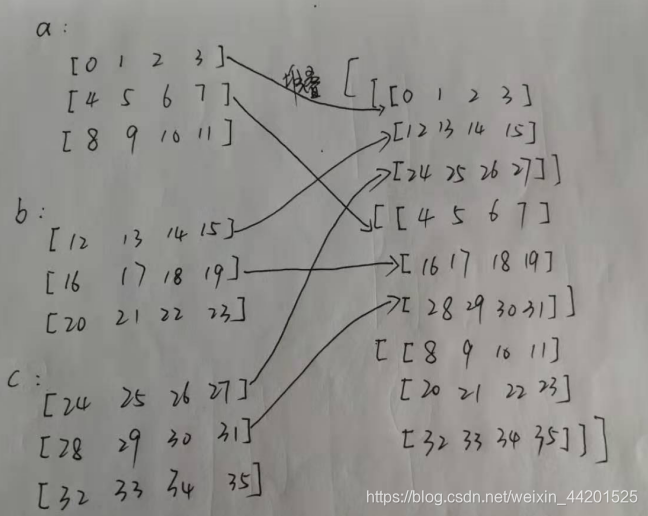 a:
[0 1 2 3]
[4 5 6 7]
[8 9 10 11]
b:
[12 13 14 15]
[16 17 18 19]
[20 21 22 23]
c:
[24 25 26 27]
[28 29 30 31]
[32 33 34 35]
堆叠
[[[0 1 2 3]
[12 13 14 15]
[24 25 26 27]]
[[4 5 6 7]
[16 17 18 19]
[28 29 30 31]]
[[8 9 10 11]
[20 21 22 23]
[32 33 34 35]]]
https://blog.csdn.net/weixin_44201525